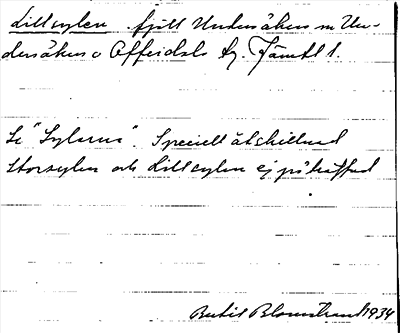 Lillsylen. fjäll Undersåkers sn Un-
dersåkers o Offerdals tg. Jämtl l.
Se "Sylarna". Speciell åtskillnad
Storsylen och Lillsylen ej påträffad
Bertil Blomstrand 1934